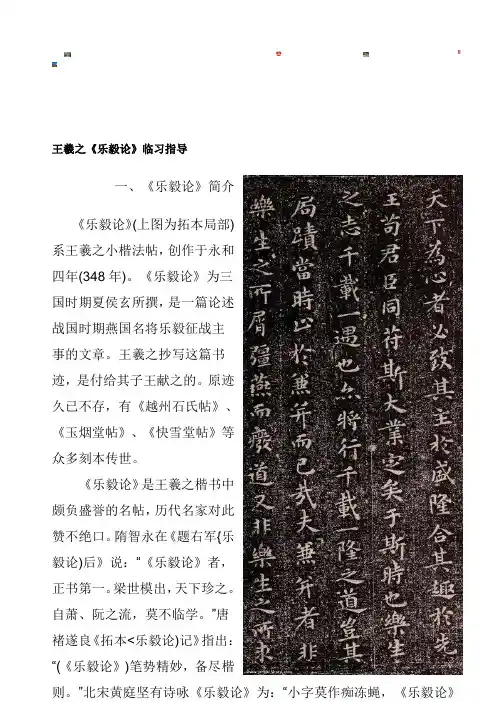 王羲之《乐毅论》临习指导
一、《乐毅论》简介
《乐毅论》(上图为拓本局部)
系王羲之小楷法帖，创作于永和
四年(348年)。《乐毅论》为三
国时期夏侯玄所撰，是一篇论述
战国时期燕国名将乐毅征战主
事的文章。王羲之抄写这篇书
迹，是付给其子王献之的。原迹
久已不存，有《越州石氏帖》、
《玉烟堂帖》、《快雪堂帖》等
众多刻本传世。
《乐毅论》是王羲之楷书中
颇负盛誉的名帖，历代名家对此
赞不绝口。隋智永在《题右军{乐
毅论)后》说：“《乐毅论》者，
正书第一。梁世模出，天下珍之。
自萧、阮之流，莫不临学。”唐
褚遂良《拓本<乐毅论)记》指出：
“(《乐毅论》)笔势精妙，备尽楷
则。”北宋黄庭坚有诗咏《乐毅论》为：“小字莫作痴冻蝇，《乐毅论》
天下為心者必致其主於盛隆合其趣於先
王苟君臣同苻斯大業定矣于斯時也樂生
之志千載一遇也亦將行千載一隆之道豈其
局蹟當時止於兼并而已哉夫兼并者非
樂生之所屑彊燕而廢道又非樂生之所求